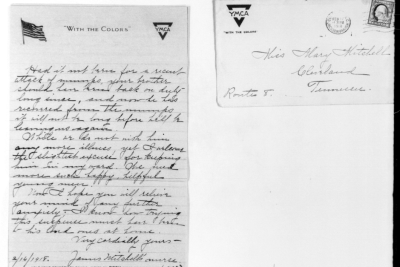 "WITH THE COLORS"
YMCA
Had it not been for a recent
attack of mumps, your brother
should have been back on duty
long since, and now he has
recovered from the mumps
it will not be long before he'll be
leaving us again.
While he is not with him
any more illness, yet I
slightest excuse for keeping
him in my ward. We need
more such happy, helpful
young men.
Now I hope you will relieve
your mind of any further
anxiety. I know how trying
this suspense must have been
to his loved ones at home.
Very cordially yours—
2/26/1918. James Mitchell's nurse.
YMCA
"WITH THE COLORS"
Miss Mary Mitchell
Cleveland
Route 5. Tennessee.